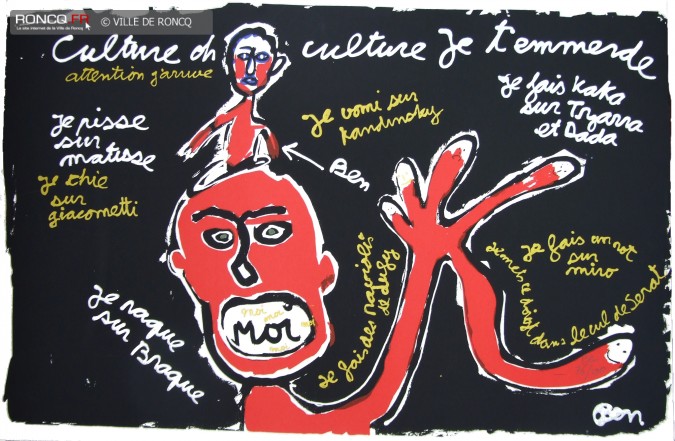 RONCQ.FR
Le site internet de la Ville de Roncq
© VILLE DE RONCQ
Culture oh culture Je t'emmerde
attention j'arrive
Je pisse
sur
matisse
Je chie
sur
giacometti
Je vomi sur
Kandinsky
Je fais Kaka
sur Tzarra
et Dada
Ben
Je raque
sur Braque
moi moi
moi
Moi
moi
Je fais des raviolis
de dufy
Je fais un rot
sur
miro
doigt dans le cul de Serat
Ben